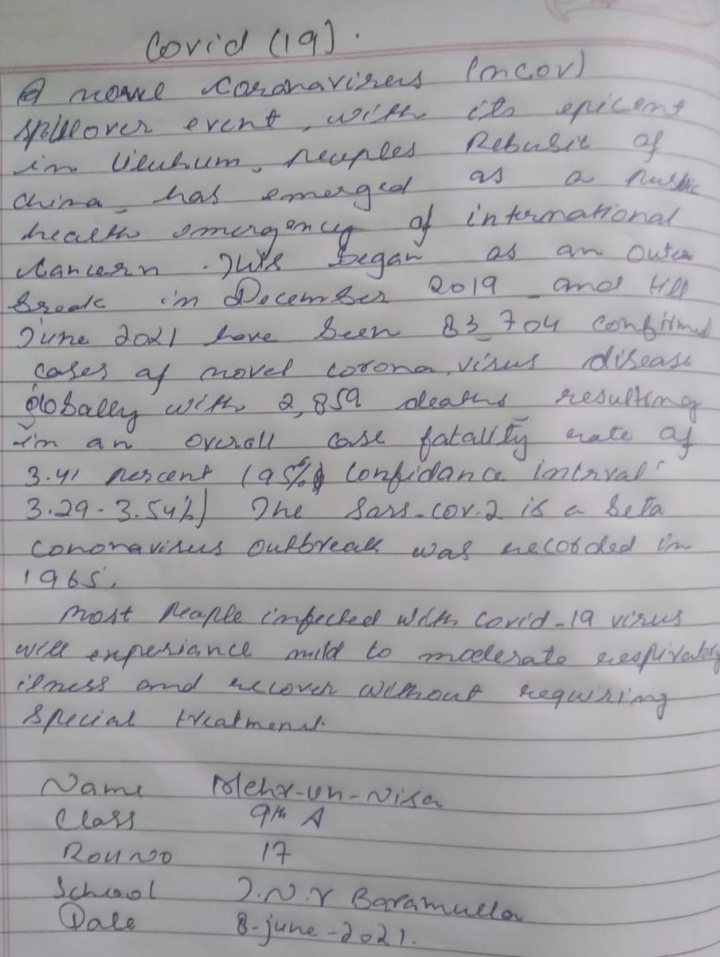 Covid (19).
A novel Coronavirus (ncov)
spillover event, with its epicent
in , peuples Rebublic of
china, has emerged as a public
health emergency of international
concern. This began as an outer
break in December 2019 and till
June 2021 have been 83,704 confirmed
cases of novel corona virus disease
globally with 2,859 deaths resulting
in an overall case fatality rate of
3.41 percent (95% Confidance interval
3.29-3.54%) The Sars-cov-2 is a beta
cononavirus outbreak was recorded in
1965.
most people infected with covid-19 virus
will experiance mild to moderate respiratory
ilness and recover without requiring
special treatment.
Name Mehr-un-Nisa
Class 9th A
Roll No 17
School J.N.V Baramulla
Date 8-june-2021.